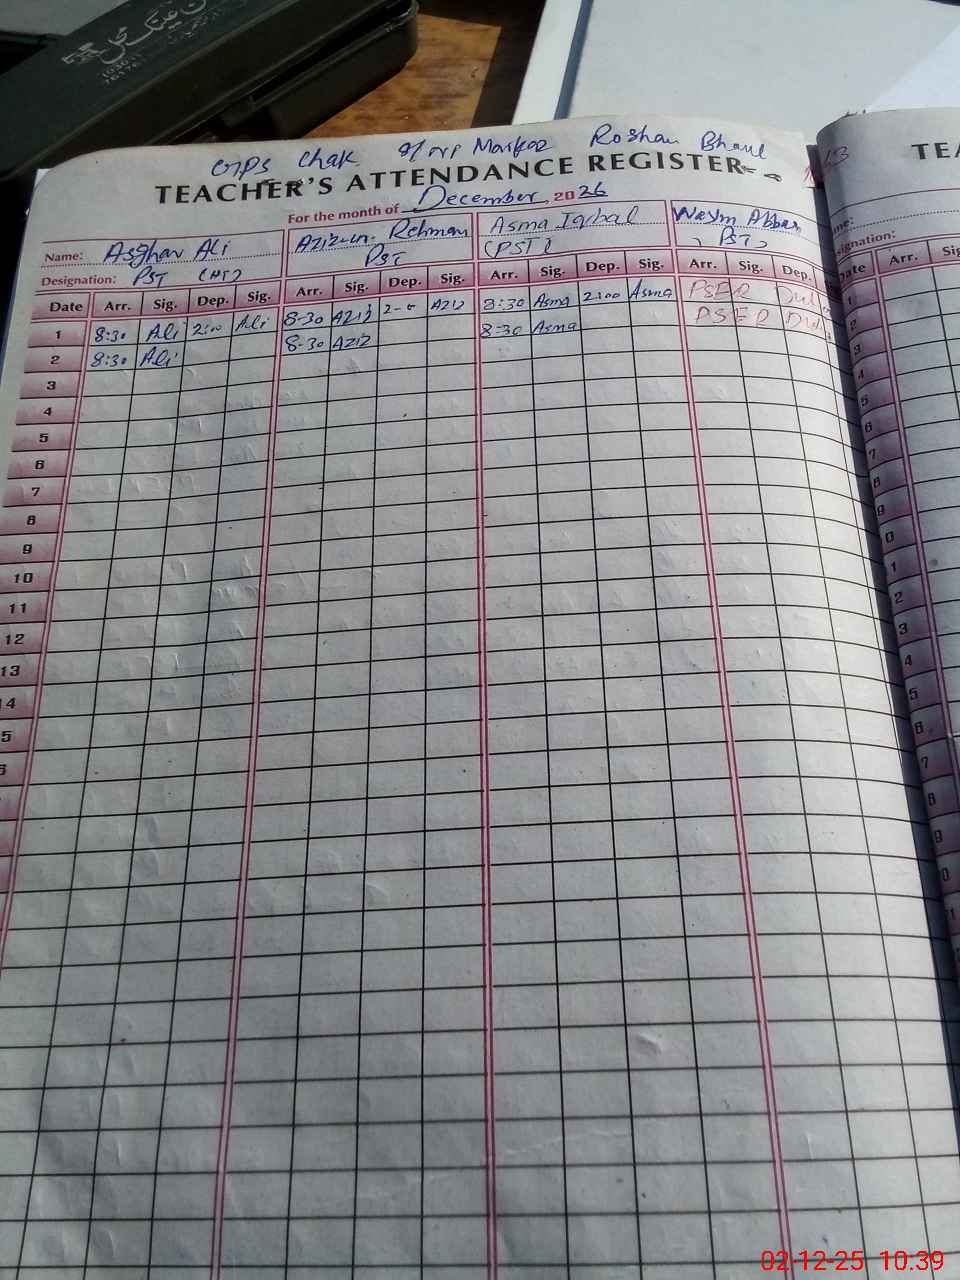 GPS Chak 91 Markaz Roshan Bhaul
TEACHER'S ATTENDANCE REGISTER
For the month of December, 2026
Name: Asghar Ali Aziz-ur-Rehman Asma Iqbal Wasim Abbas
Designation: PST (HT) PST (PST) PST
Date Arr. Sig. Dep. Sig. Arr. Sig. Dep. Sig. Arr. Sig. Dep. Sig. Arr. Sig. Dep.
1 8:30 Ali 2:00 Ali 8-30 AZIZ AZIZ 8:30 Asma 2:00 Asma PSER
2 8:30 Ali 8-30 AZIZ 8:30 Asma PSER
3
4
5
6
7
8
9
10
11
12
13
14
5
TEA
me:
signation:
Date Arr. Sig
1
2
3
4
5
6
7
8
9
0
1
2
3
4
5
6
7
8
9
0
1
02-12-25 10:39